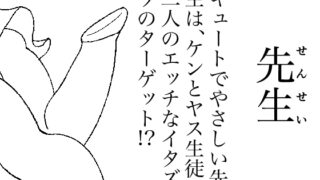 先生
せんせい
ュートでやさしい先
生は、ケンとヤス生徒
二人のエッチなイタズ
ラのターゲット!?